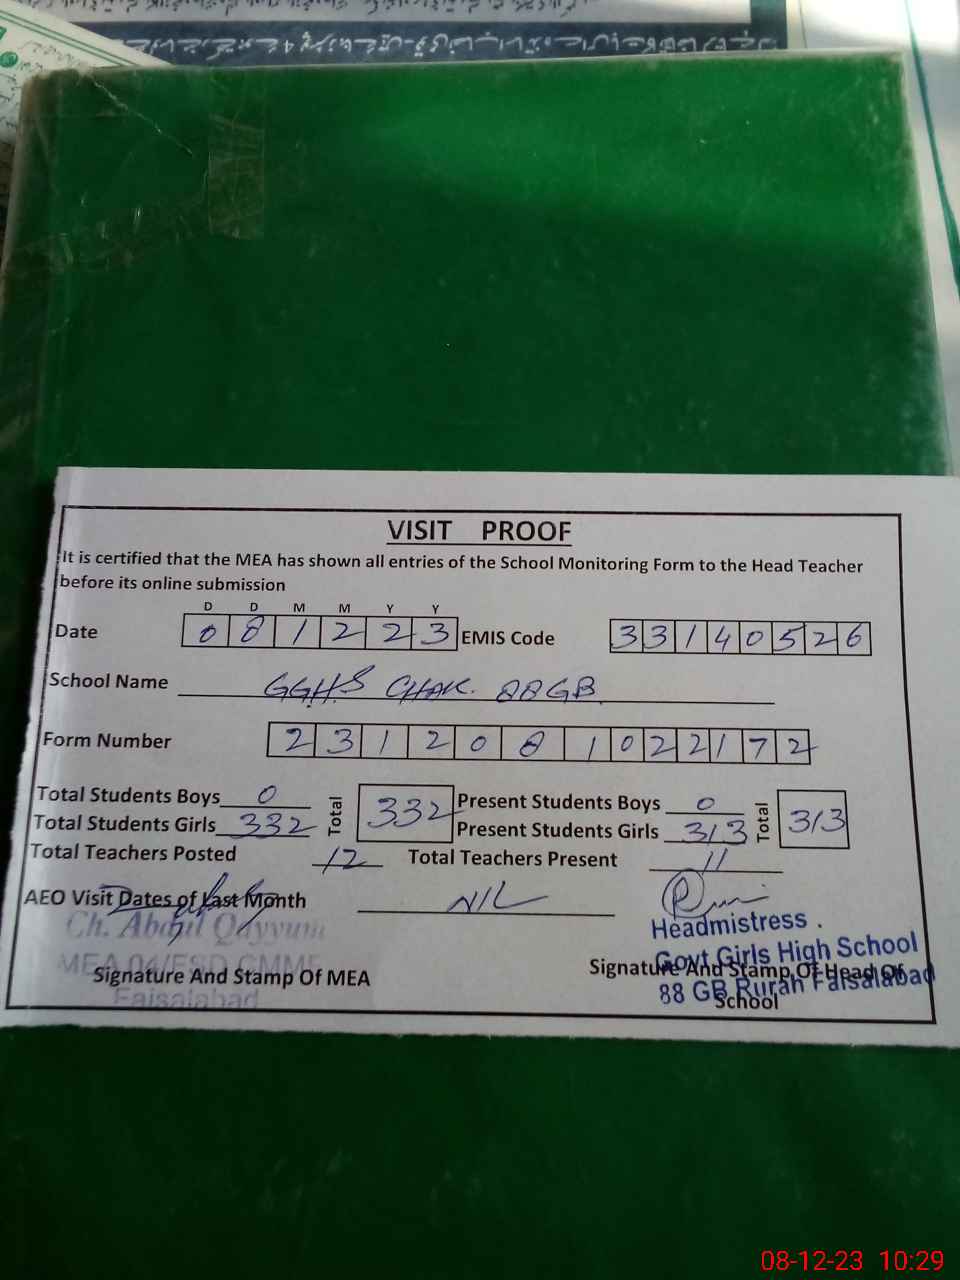 VISIT PROOF
It is certified that the MEA has shown all entries of the School Monitoring Form to the Head Teacher
before its online submission
D D M M Y Y
Date 0 8 1 2 2 3 EMIS Code 3 3 1 4 0 5 2 6
School Name GGHS CHAK. 88GB
Form Number 2 3 1 2 0 8 1 0 2 2 1 7 2
Total Students Boys 0 Total 332 Present Students Boys 0 Total 313
Total Students Girls 332 Present Students Girls 313
Total Teachers Posted 12 Total Teachers Present 11
AEO Visit Dates of Last Month NIL
Ch. Abdul Qayyum
MEA 04/FSD CMMF
Faisalabad
Signature And Stamp Of MEA
Headmistress .
Govt Girls High School
88 GB Rurah Faisalabad
Signature And Stamp Of Head Of
School
08-12-23 10:29